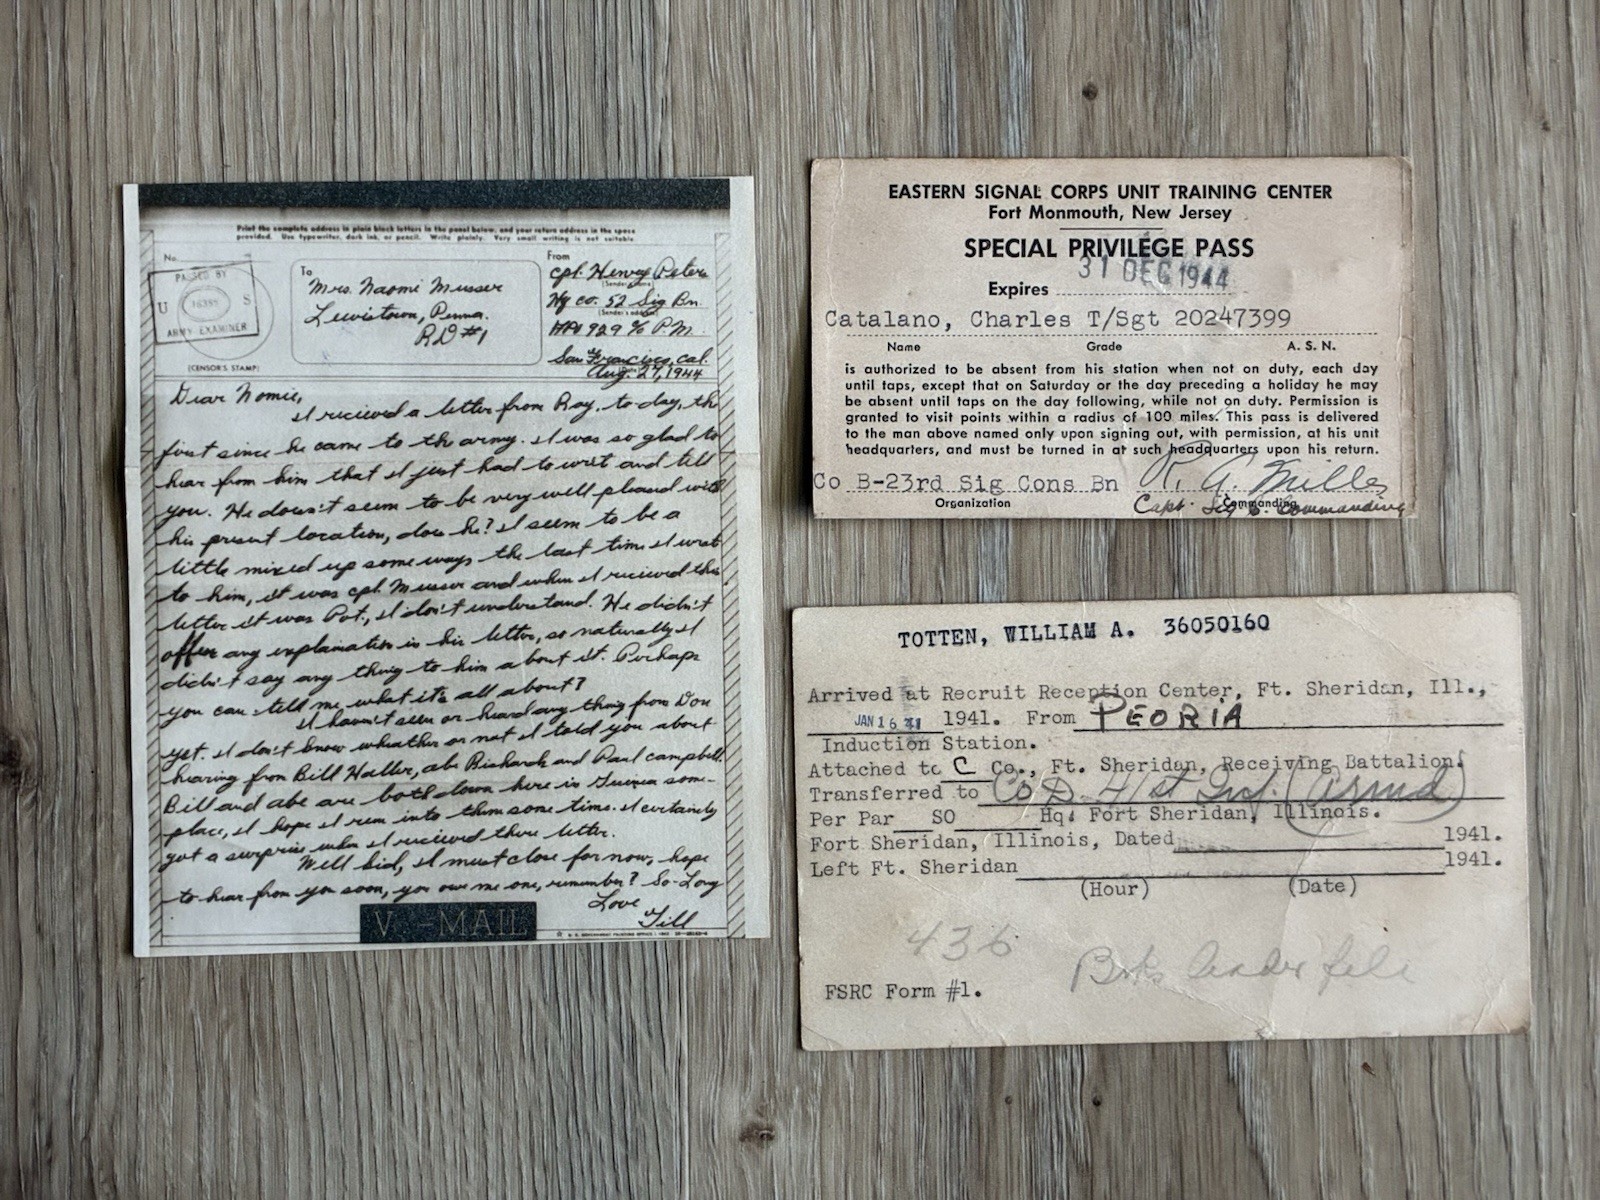 Print the complete address in plain block letters in the panel below, and your return address in the space
provided. Use typewriter, dark ink, or pencil. Write plainly. Very small writing is not suitable.
No.
PASSED BY
U S
ARMY EXAMINER
(CENSOR'S STAMP)
To
Mrs. Naomi Musser
Lewistown, Penna.
RD #1
From
cpl. Henry Peters
(Sender's name)
Hq co. 52 Sig Bn.
(Sender's address)
APO 929 % P.M.
San Francisco, Cal.
Aug. 27, 1944
Dear Nomie,
I recieved a letter from Roy, to-day, the
first since he came to the army. I was so glad to
hear from him that I just had to writ and tell
you. He doesn't seem to be very well pleased with
his present location, does he? I seem to be a
little mixed up some ways the last time I wrot
to him, it was cpl. Musser and when I recieved this
letter it was Pvt, I don't understand. He didn't
offer any explanation in his letter, so naturally I
didn't say any thing to him about it. Perhaps
you can tell me what it's all about?
I haven't seen or heard any thing from Don
yet. I don't know wheather or not I told you about
hearing from Bill Haller, abe Richards and Paul campbell.
Bill and abe are both down here in Guinea some-
place, I hope I run into them some time. I certainly
got a surprise when I recieved there letter.
Well kid, I must close for now, hope
to hear from you soon, you owe me one, remember? So-Long
Love
Till
V···-MAIL
EASTERN SIGNAL CORPS UNIT TRAINING CENTER
Fort Monmouth, New Jersey
SPECIAL PRIVILEGE PASS
31 DEC 1944
Expires
Catalano, Charles T/Sgt 20247399
Name Grade A. S. N.
is authorized to be absent from his station when not on duty, each day
until taps, except that on Saturday or the day preceding a holiday he may
be absent until taps on the day following, while not on duty. Permission is
granted to visit points within a radius of 100 miles. This pass is delivered
to the man above named only upon signing out, with permission, at his unit
headquarters, and must be turned in at such headquarters upon his return.
Co B-23rd Sig Cons Bn R. A. Miller
Organization Commanding
Capt. Sig C. Commanding
TOTTEN, WILLIAM A. 36050160
Arrived at Recruit Reception Center, Ft. Sheridan, Ill.,
JAN 16 41 1941. From PEORIA
Induction Station.
Attached to C Co., Ft. Sheridan, Receiving Battalion.
Transferred to Co D 41st Inf. (Armd)
Per Par SO Hq. Fort Sheridan, Illinois.
Fort Sheridan, Illinois, Dated 1941.
Left Ft. Sheridan 1941.
(Hour) (Date)
436
file
FSRC Form #1.